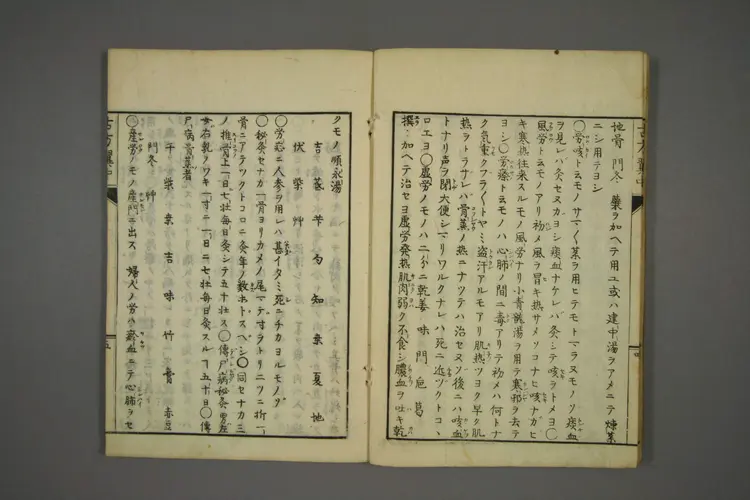 地骨 門冬 藥ヲ加ヘテ用ユ或ハ建中湯ヲアメニテ煉藥
ニシ用テヨシ
○労咳ト云モノサマ〱藥ヲ用ヒテモトマラヌモノソ痰血
ヲ見レハ灸セヌカヨシ痰血ナケレハ灸シテ咳ヲトメヨ○
風労ト云モノアリ初メ風ヲ冒キ熱サメソコナヒ咳ナカヒ
キ寒熱往来スルモノ風労ナリ小青龍湯ヲ用テ寒邪ヲ去テ
ヨシ○労瘵ト云モノハ心肺ノ間ニ毒アリテ初メハ何トナ
ク氣重クフラ〱トヤミ盗汗アルモアリ肌熱ツヨク早ク肌
熱ヲトラサレハ骨蒸ノ熱ニナツテハ治セヌソ後ニハ咳血
トナリ声ヲ閉大便シマリワルクナレハ死ニ近ツクトコヽ
ロエヨ○虚労ノモノハ二分ニ乾姜 味 門 巵 葛
撰 加ヘテ治セヨ虚労発熱肌肉弱ク不食シ膿血ヲ吐キ乾
クモノ順永湯
吉 蔞 芐 勺 知 柴 夏 地
伏 柴 艸
○労症ニ人参ヲ用レハ甚イタミ死ニチカヨルモノソ
○秘灸セナカノ骨ヨリカメノ尾マテ寸ヲトリ二ツニ折一
骨ニアテツクトコロニ灸年ノ数ホトスヘシ○同セナカ三
ノ推骨上一日七壮毎日灸シテ五十壮ス○傳尸病秘灸男左
女右乳ノワキ一寸ニ一日ニ七壮毎日灸スル丁五十日○傳
尸病骨蒸者
干 柴 京 吉 味 竹 膏 赤豆
門冬 艸
○産労ノモノ産門ニ出ス 婦人ノ労ハ瘀血ニテ心肺ヲセ